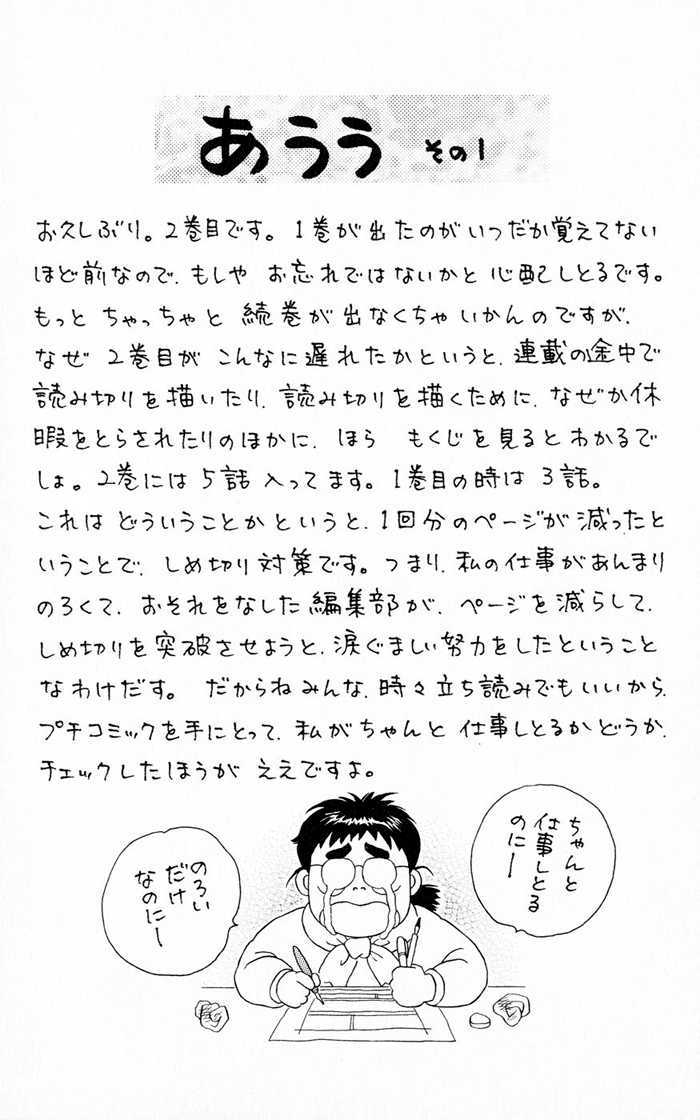 あうう その1
お久しぶり。2巻目です。1巻が出たのがいつだか覚えてない
ほど前なので、もしや お忘れではないかと心配しとるです。
もっと ちゃっちゃと 続巻が出なくちゃいかんのですが、
なぜ 2巻目が こんなに遅れたかというと、連載の途中で
読み切りを描いたり、読み切りを描くために、なぜか休
暇をとらされたりのほかに、ほら もくじを見るとわかるで
しょ。2巻には5話入ってます。1巻目の時は3話。
これは どういうことかというと、1回分のページが減ったと
いうことで、しめ切り対策です。つまり、私の仕事があんまり
のろくて、おそれをなした編集部が、ページを減らして、
しめ切りを突破させようと、涙ぐましい努力をしたということ
なわけだす。 だからねみんな、時々立ち読みでもいいから、
プチコミックを手にとって、私がちゃんと仕事しとるかどうか、
チェックしたほうが ええですよ。
ちゃんと
仕事しとる
のにー
のろい
だけ
なのにー